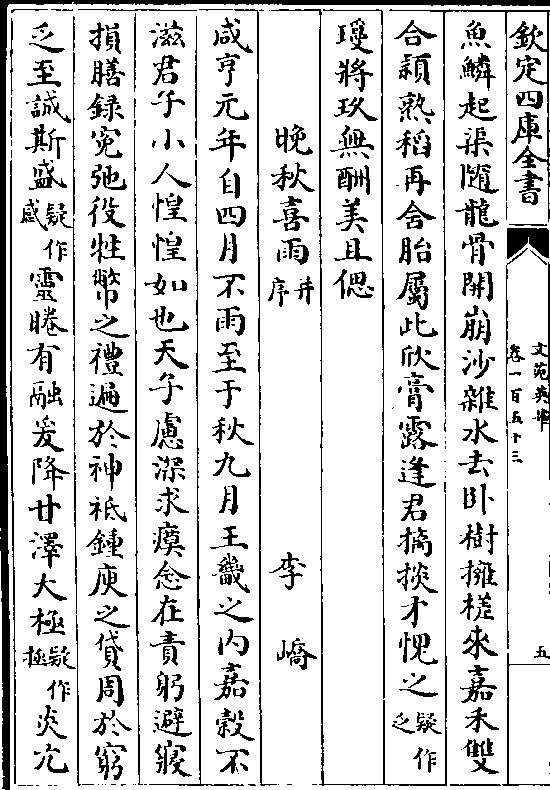 欽定四庫全書
文苑英華
卷一百五十三
五
魚鱗起渠隨龍骨開崩沙雜水去卧樹擁槎來嘉禾雙
合穎熟稻再含胎屬此欣膏露逢君摛掞才愧之疑作乏
瓊將玖無酬美且偲
晚秋喜雨并序
李嶠
咸亨元年自四月不雨至于秋九月王畿之内嘉穀不
滋君子小人惶惶如也天子慮深求瘼念在責躬避寢
損膳録寃弛役牲幣之禮遍於神祇鍾庾之貸周於窮
乏至誠斯盛疑作感靈睠有融爰降甘澤大極疑作拯炎亢